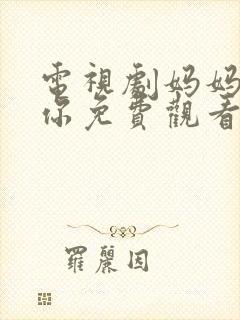 電視劇妈妈
你免費觀看
羅麗因